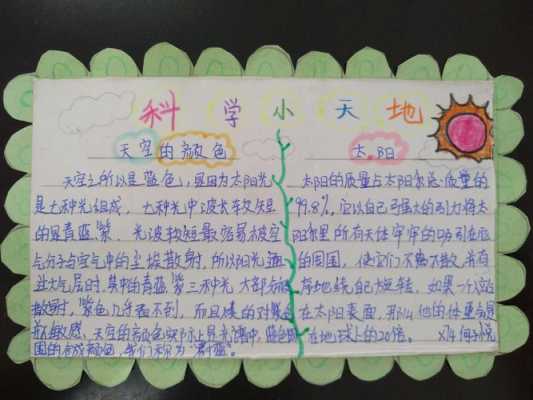 科学小天地
天空的颜色
天空之所以是蓝色,是因为太阳光
是七种光组成,七种光中波长较短
的是青蓝紫,光波较短最容易被空
气分子与空气中的尘埃散射,所以阳光通
过大气层时,其中的青蓝紫三种光大部分被
散射,紫色几乎看不到,而且的对紫色
敏感。天空的颜色实际上是光谱中蓝色
围的合成颜色,我们称为“青蓝”。
太阳
太阳的质量占太阳系总质量的
99.8%,它以自己强大的引力将太
阳系里所有天体牢牢的吸引在
的周围,使它们不离不散,并有
序地绕自己旋转。如果一个人站
在太阳表面,那么他的体重会是
在地球上的20倍。